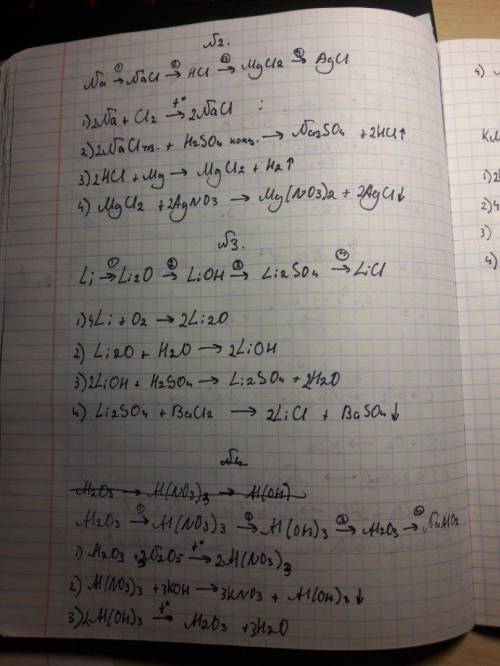 №2.
Na →① NaCl →② HCl →③ MgCl2 →④ AgCl
1) 2Na + Cl2 →t° 2NaCl
2) 2NaCl тв. + H2SO4 конц. → Na2SO4 + 2HCl↑
3) 2HCl + Mg → MgCl2 + H2↑
4) MgCl2 + 2AgNO3 → Mg(NO3)2 + 2AgCl↓
№3.
Li →① Li2O →② LiOH →③ Li2SO4 →④ LiCl
1) 4Li + O2 → 2Li2O
2) Li2O + H2O → 2LiOH
3) 2LiOH + H2SO4 → Li2SO4 + 2H2O
4) Li2SO4 + BaCl2 → 2LiCl + BaSO4↓
№4
Al2O3 → Al(NO3)3 → Al(OH)
Al2O3 →① Al(NO3)3 →② Al(OH)3 →③ Al2O3 →④ NaAlO2
1) Al2O3 + 3N2O5 →t° 2Al(NO3)3
2) Al(NO3)3 + 3KOH → 3KNO3 + Al(OH)3↓
3) 2Al(OH)3 →t° Al2O3 + 3H2O
4)
1)
2)
3)
4)